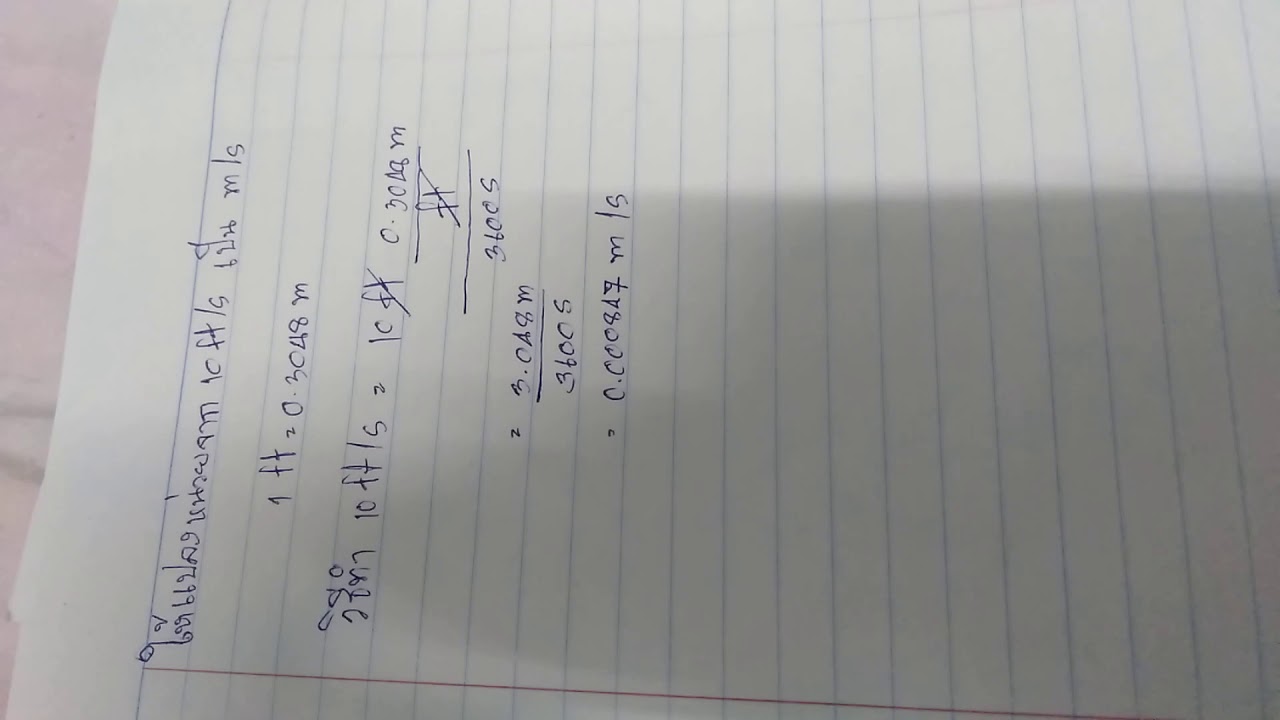 ให้แปลงหน่วยจาก 10 ft/s เป็น m/s
1 ft = 0.3048 m
วิธีทำ 10 ft/s = 10 ft 0.3048 m
ft
3600 s
= 3.048 m
3600 s
= 0.000847 m/s